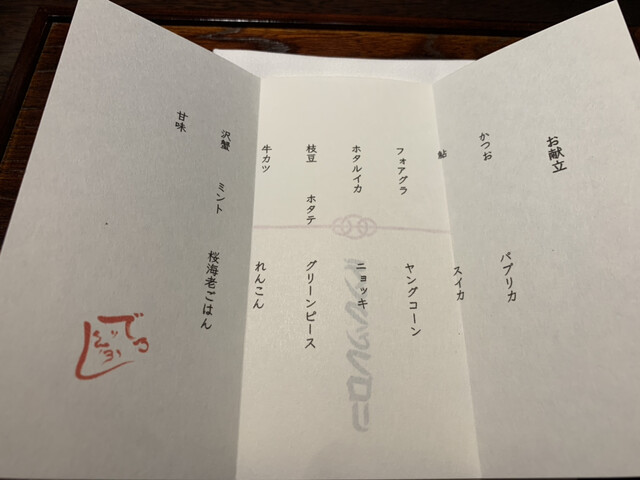 お献立
かつお パプリカ
鮎 スイカ
フォアグラ ヤングコーン
ホタルイカ ニョッキ
枝豆 ホタテ グリーンピース
牛カツ れんこん
沢蟹 ミント 桜海老ごはん
甘味